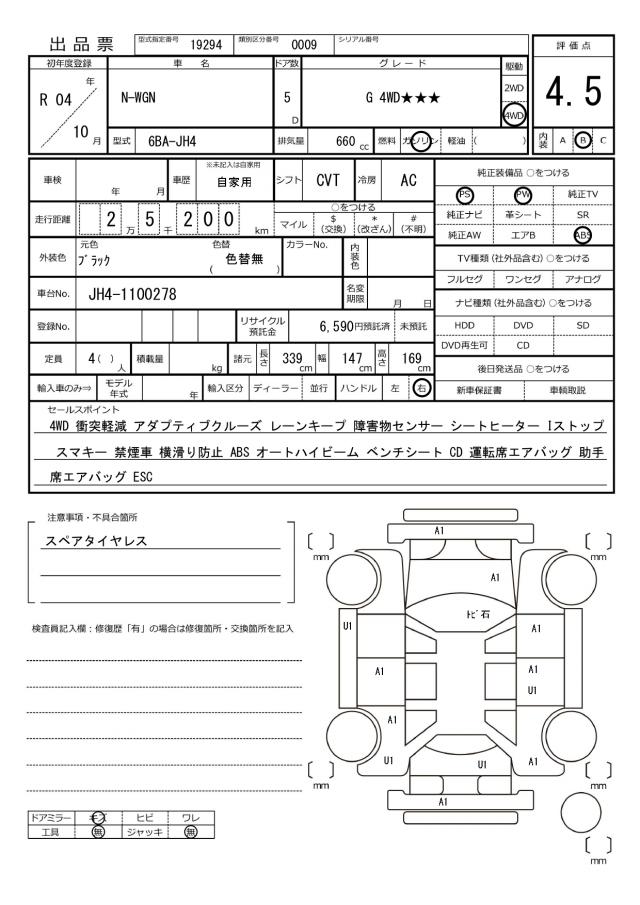 出品票 型式指定番号 19294 類別区分番号 0009 シリアル番号
評価点
4.5
初年度登録 車名 ドア数 グレード 駆動
R 04 年 N-WGN 5 D G 4WD★★★ 2WD
4WD
10 月 型式 6BA-JH4 排気量 660 cc 燃料 ガソリン 軽油 ( ) 内装 A B C
車検 年 月 車歴 ※未記入は自家用 自家用 シフト CVT 冷房 AC
純正装備品 ○をつける
PS PW 純正TV
走行距離 2 万 5 千 2 0 0 km ○をつける
マイル $ (交換) * (改ざん) # (不明)
純正ナビ 革シート SR
純正AW エアB ABS
外装色 元色 ブラック 色替 ( 色替無 ) カラーNo. 内装色
TV種類 (社外品含む) ○をつける
フルセグ ワンセグ アナログ
車台No. JH4-1100278 名変期限 月 日
ナビ種類 (社外品含む) ○をつける
登録No. リサイクル預託金 6,590円預託済 未預託
HDD DVD SD
DVD再生可 CD
定員 4 ( ) 人 積載量 kg 諸元 長さ 339 cm 幅 147 cm 高さ 169 cm
後日発送品 ○をつける
輸入車のみ⇒ モデル年式 年 輸入区分 ディーラー 並行 ハンドル 左 右
新車保証書 車輌取説
セールスポイント
4WD 衝突軽減 アダプティブクルーズ レーンキープ 障害物センサー シートヒーター Iストップ
スマキー 禁煙車 横滑り防止 ABS オートハイビーム ベンチシート CD 運転席エアバッグ 助手
席エアバッグ ESC
注意事項・不具合箇所
スペアタイヤレス
検査員記入欄:修復歴「有」の場合は修復箇所・交換箇所を記入
ドアミラー キズ ヒビ ワレ
工具 無 ジャッキ 無
A1
[ ] mm
[ ] mm
A1
トビ石
U1
A1
A1
A1
U1
A1
U1
U1
A1
[ ] mm
[ ] mm
A1
[ ] mm